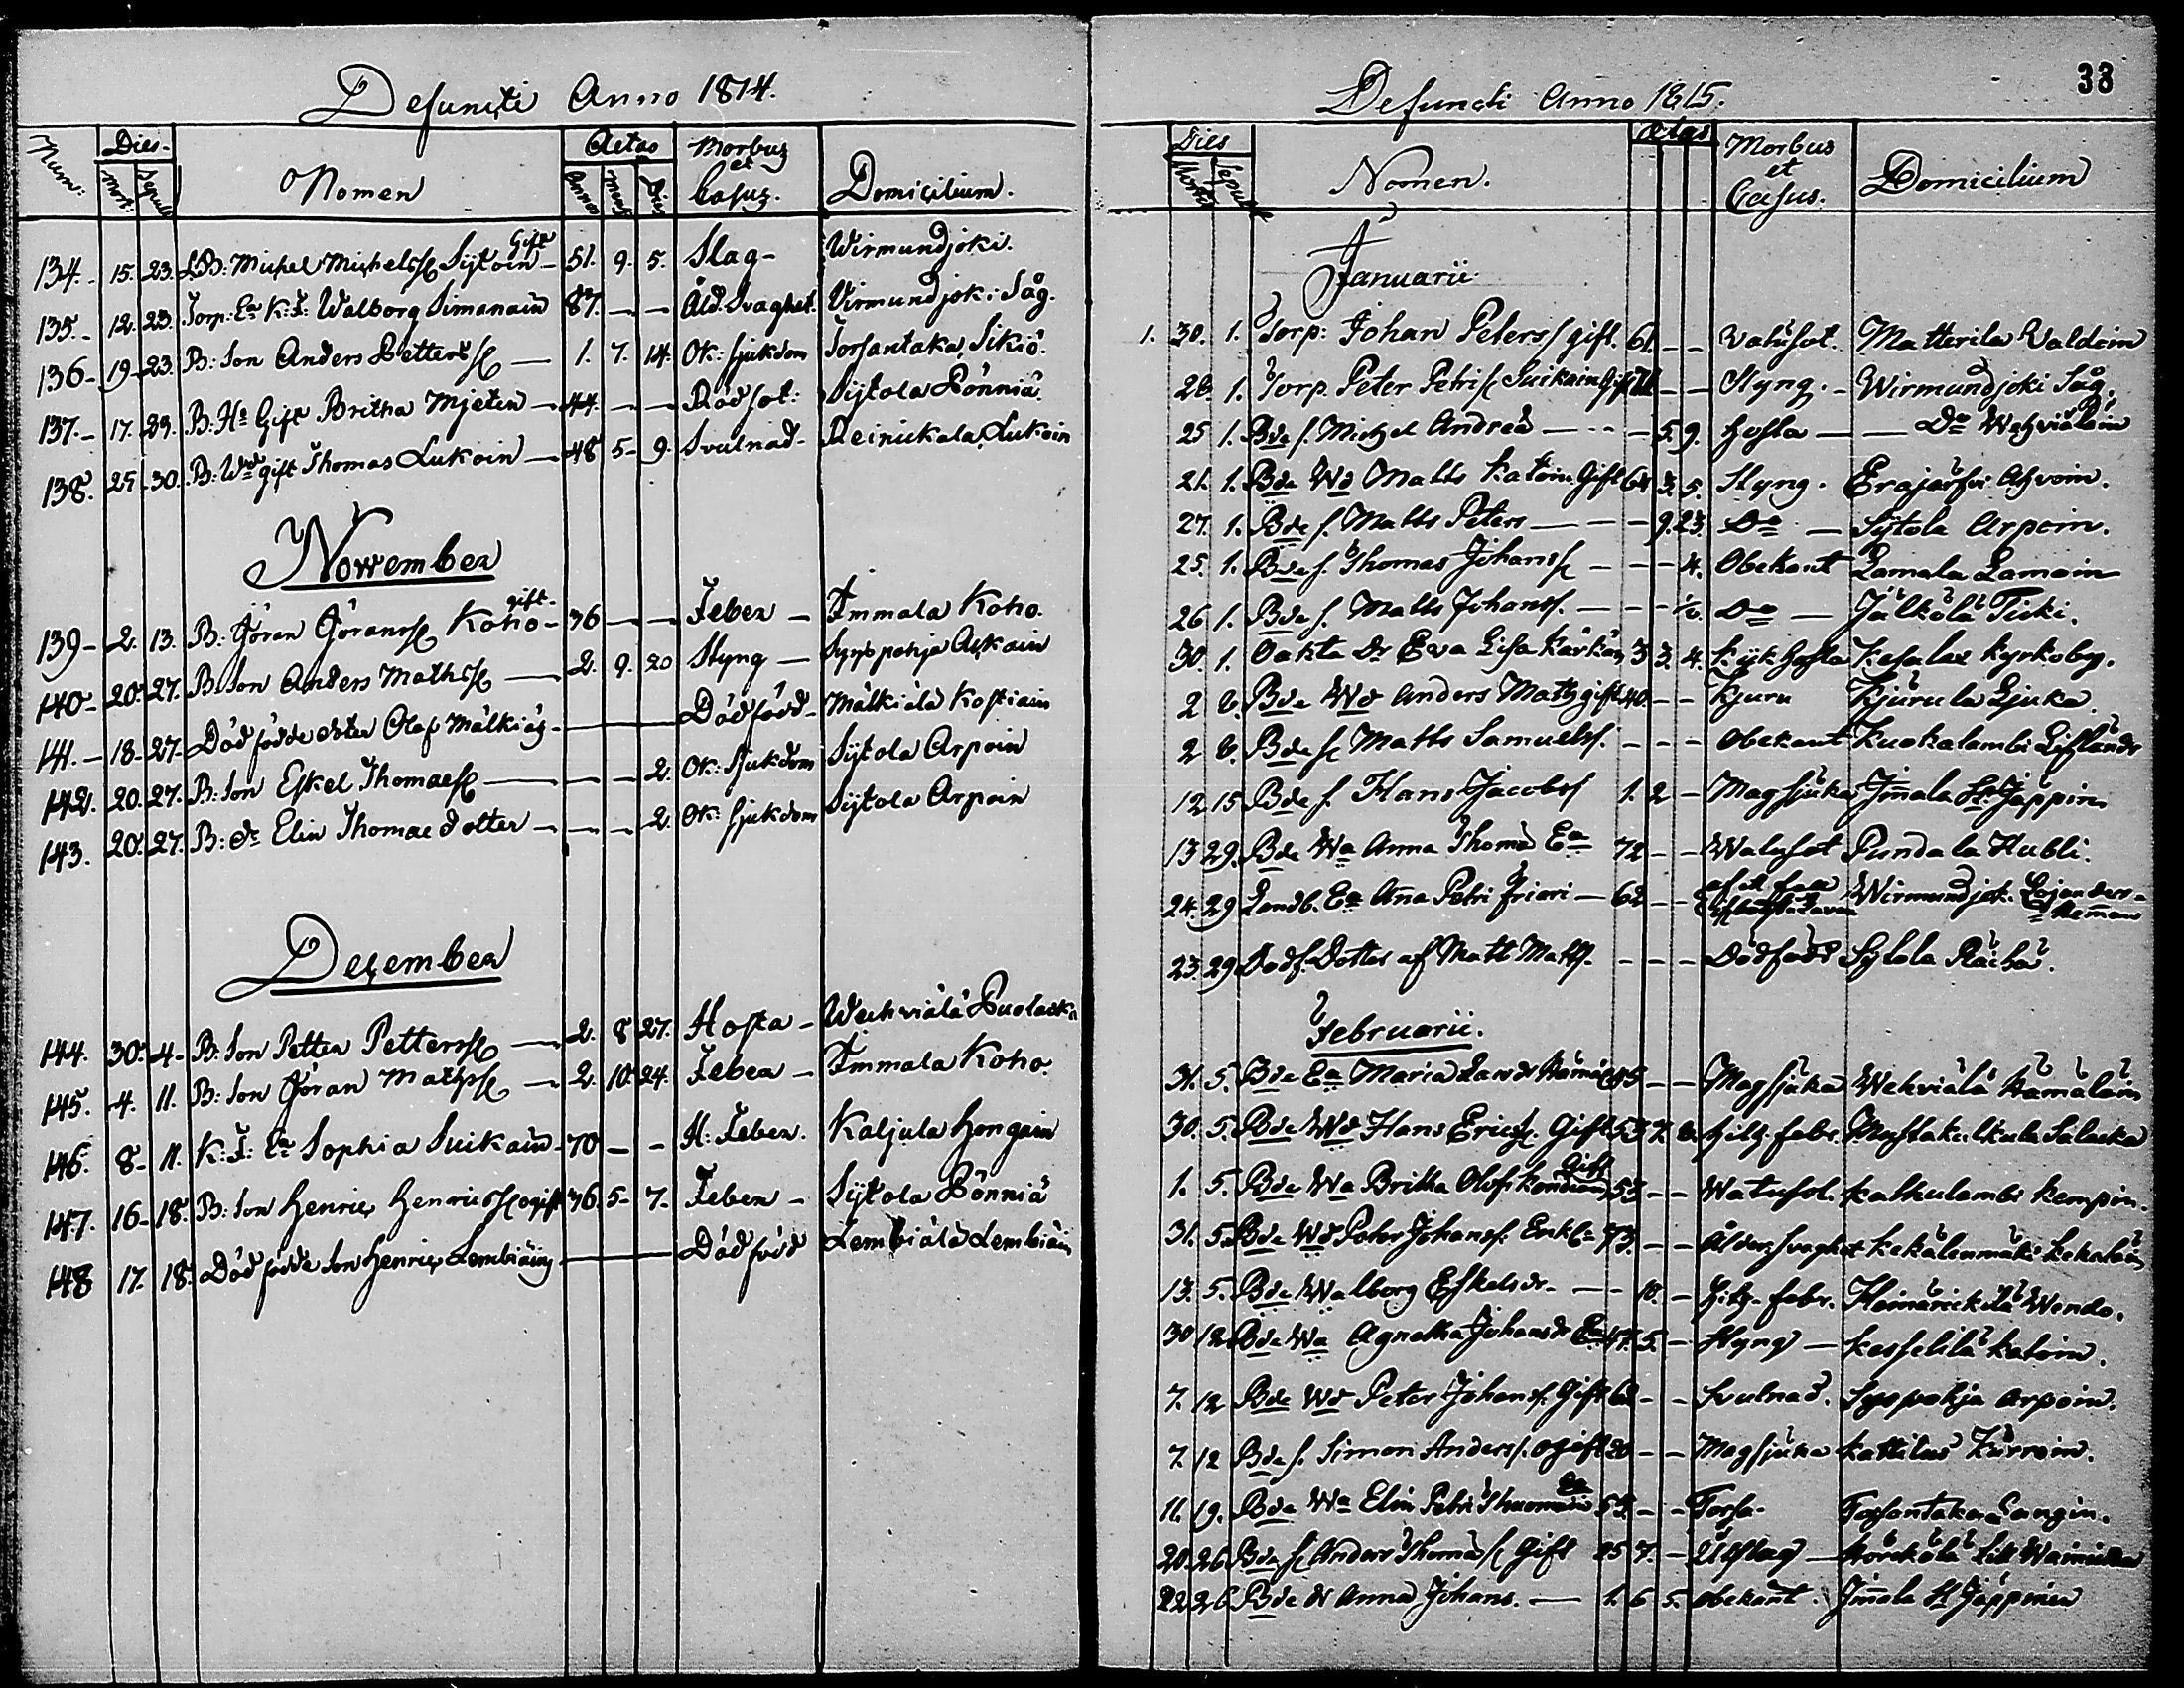 Defuncti Anno 1814.
Num: Dies. Mort: Sepult Nomen Aetas Annos Mens Dies Morbus et Casus. Domicilium.
134. 15. 23. LB: Michel Michelss Sijtoin Gift 51. 9. 5. Slag - Wirmundjoki.
135. 12. 23. Torp: Ea K: I: Walborg Simanain 87. — — Åld. Svaghet. Virmundjoki Såg.
136 - 19 - 23. B: Son Anders Petterss — 1. 7. 14. Ok: sjukdom Torsantaka, Sikiö.
137. - 17. 23. B. Ha Gift Britha Mjetin — 44. — — Rödsot: Sijtola Pönniä.
138. 25. 30. B: Wd gift Thomas Lukoin — 48 5 - 9. Svulnad - Reinikala, Lukoin
November
139 - 2. 13. B: Göran Göranss Koho gift - 36 — — Feber — Immala Koho.
140 - 20. 27. B. Son Anders Mathss — 2. 9. 20 Styng — Syyspohja Askain
141. - 18 - 27. Död födde dotter Olof Mälkiäs - — Död född - Mälkiälä Kostiain
142. 20. 27. B: Son Eskel Thomaess — — — 2. Ok: Sjukdom Sijtola Arpoin
143. 20. 27. B: dr Elin Thomae dotter — — — 2. Ok: sjukdom Sijtola Arpoin
December
144. 30. 4 - B: Son Petter Petterss — 2. 8 27. Hosta - Wehviälä Puolakk
145. 4. 11. B: Son Göran Mathss — 2. 10. 24. Feber — Immala Koho.
146. 8 - 11. K: I: Ea Sophia Suikain - 70 — - H: Feber. Kaljula Hongain
147. 16 - 18. B: Son Henric Henricss ogift 36. 5 - 7. Feber - Sijtola Pönniä
148 17. 18. Död födde Son Henric Lembiäins — Död född Lembiälä Lembiäin
33
Defuncti Anno 1815.
Dies Mortis Sepult Nomen. Ætas Morbus et Casus. Domicilium
Januarii
1. 30. 1. Torp: Johan Peterss gift. 61. - - Vatusot. Matterila Valdoin
28. 1. Torp. Peter Petriss Suikain Gift - - Styng. - Wirmundjoki Såg.
25 1. Bde s. Michel Andreæ — - - 5. 9. Hosta — — Do Wehviäläin
21. 1. Bde Wd Matts Katoin Gift 64 3. 5. Styng. Erajärfvi Ahvoin.
27. 1. Bde s. Matts Peters — - - 9. 23. Do — Sijtola Arpoin.
25. 1. Bde s. Thomas Johanss — - - 4. Obekant Lamala Lamoin
26 1. Bde s. Matts Johanss. — - - ½. Do — Jälkölä Ticki.
30. 1. Oäkta Dr Eva Lisa Kärkän 3 3. 4. Kikhosta Kesalax Kyrkoby.
2 6. Bde Wd Anders Matts gift 40. - - Kjuru Kjurula Ljuka.
2 6. Bde s Matts Samuelss. - - - Obekant Kuokalambi Lifländr
12 15 Bde s. Hans Jacobss 1. 2 - Magsjuka Immala St: Jäppin
13 29. Bde Wa Anna Thomæ Ea 72 - - Watusot Pundala Hubli.
24. 29 Landb. Ea Anna Petri Friari — 62 - - Wirmundjok. Lojanders-
23. 29 Dödf. Dotter af Matt Matts. - - - Dödfödd Sijtola Rächä.
Februarii.
31. 5. Bde Ea Maria Larsdr - - Magsjuka Wehviälä Hämäläin
30. 5. Bde Wd Hans Ericss. Gift 53 7. 6. Hitz. febr. Mustakulkula Salacka
1. 5. Bde Wa Britha Olofs Kondiain Gift 53 - - Watusot. Kalkulambi Kempin.
31. 5. Bde Wd Peter Johanss. Enkl. 73. - - Ålder. svaghet Kekälenmäki Kekäläin
13. 5. Bde Walborg Eskelsdr. — - 10. - Hitz. febr. Heinärickilä Wende.
30 12. Bde Wa Agnetha Johansdr Ea 47. 5. - Styng — Kesselilä Katoin.
7. 12 Bde Wd Peter Johanss. Gift 62 - - Svulnad. Syyspohja Arpoin.
7. 12 Bde s. Simon Anderss. ogift 20 - - Magsjuka Kattilus Kürroin.
11. 19. Bde Wa Elin Petri Thuomain Ea 53. - - Torsa. Torsantaka Langin.
20. 26 Bde s Anders Thomæss Gift 25 7. - Utslag —
22 26 Bde dr Anna Johans. — 1. 6 5. Obekant. Immala St Jäppinen